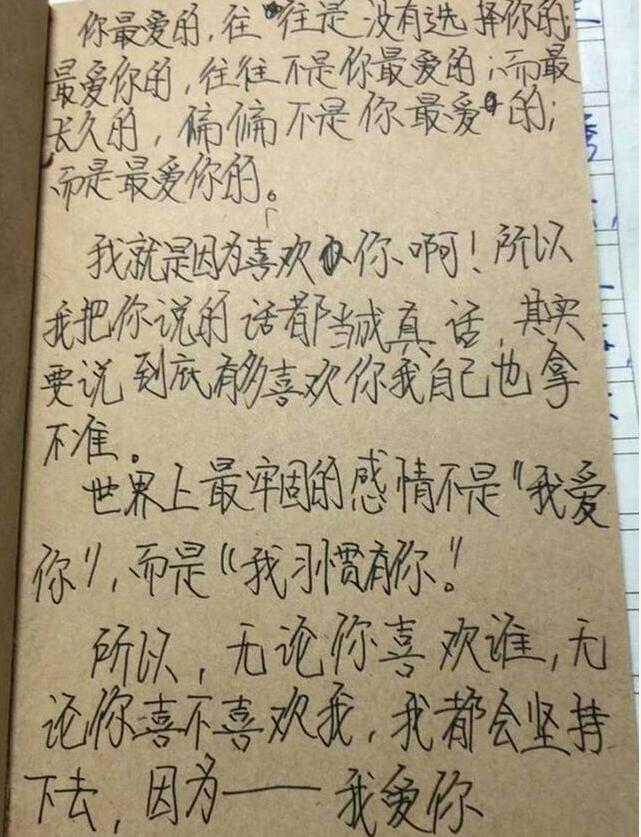 你最爱的，往往是没有选择你的；
最爱你的，往往不是你最爱的；而最
长久的，偏偏不是你最爱的；
而是最爱你的。
我就是因为喜欢你啊！所以
我把你说的话都当成真话，其实
要说到底有多喜欢你我自己也拿
不准。
世界上最牢固的感情不是“我爱
你”，而是“我习惯有你。”
所以，无论你喜欢谁，无
论你喜不喜欢我，我都会坚持
下去，因为——我爱你